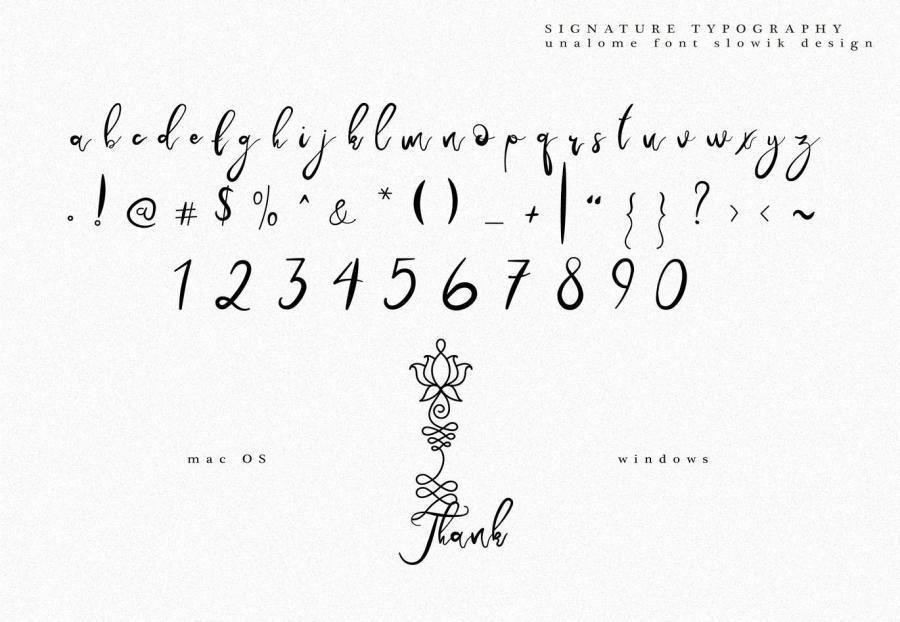 SIGNATURE TYPOGRAPHY
unalome font slowik design
a b c d e f g h i j k l m n o p q r s t u v w x y z
. ! @ # $ % ^ & * ( ) _ + | “ { } ? > < ~
1 2 3 4 5 6 7 8 9 0
mac OS windows
Thank